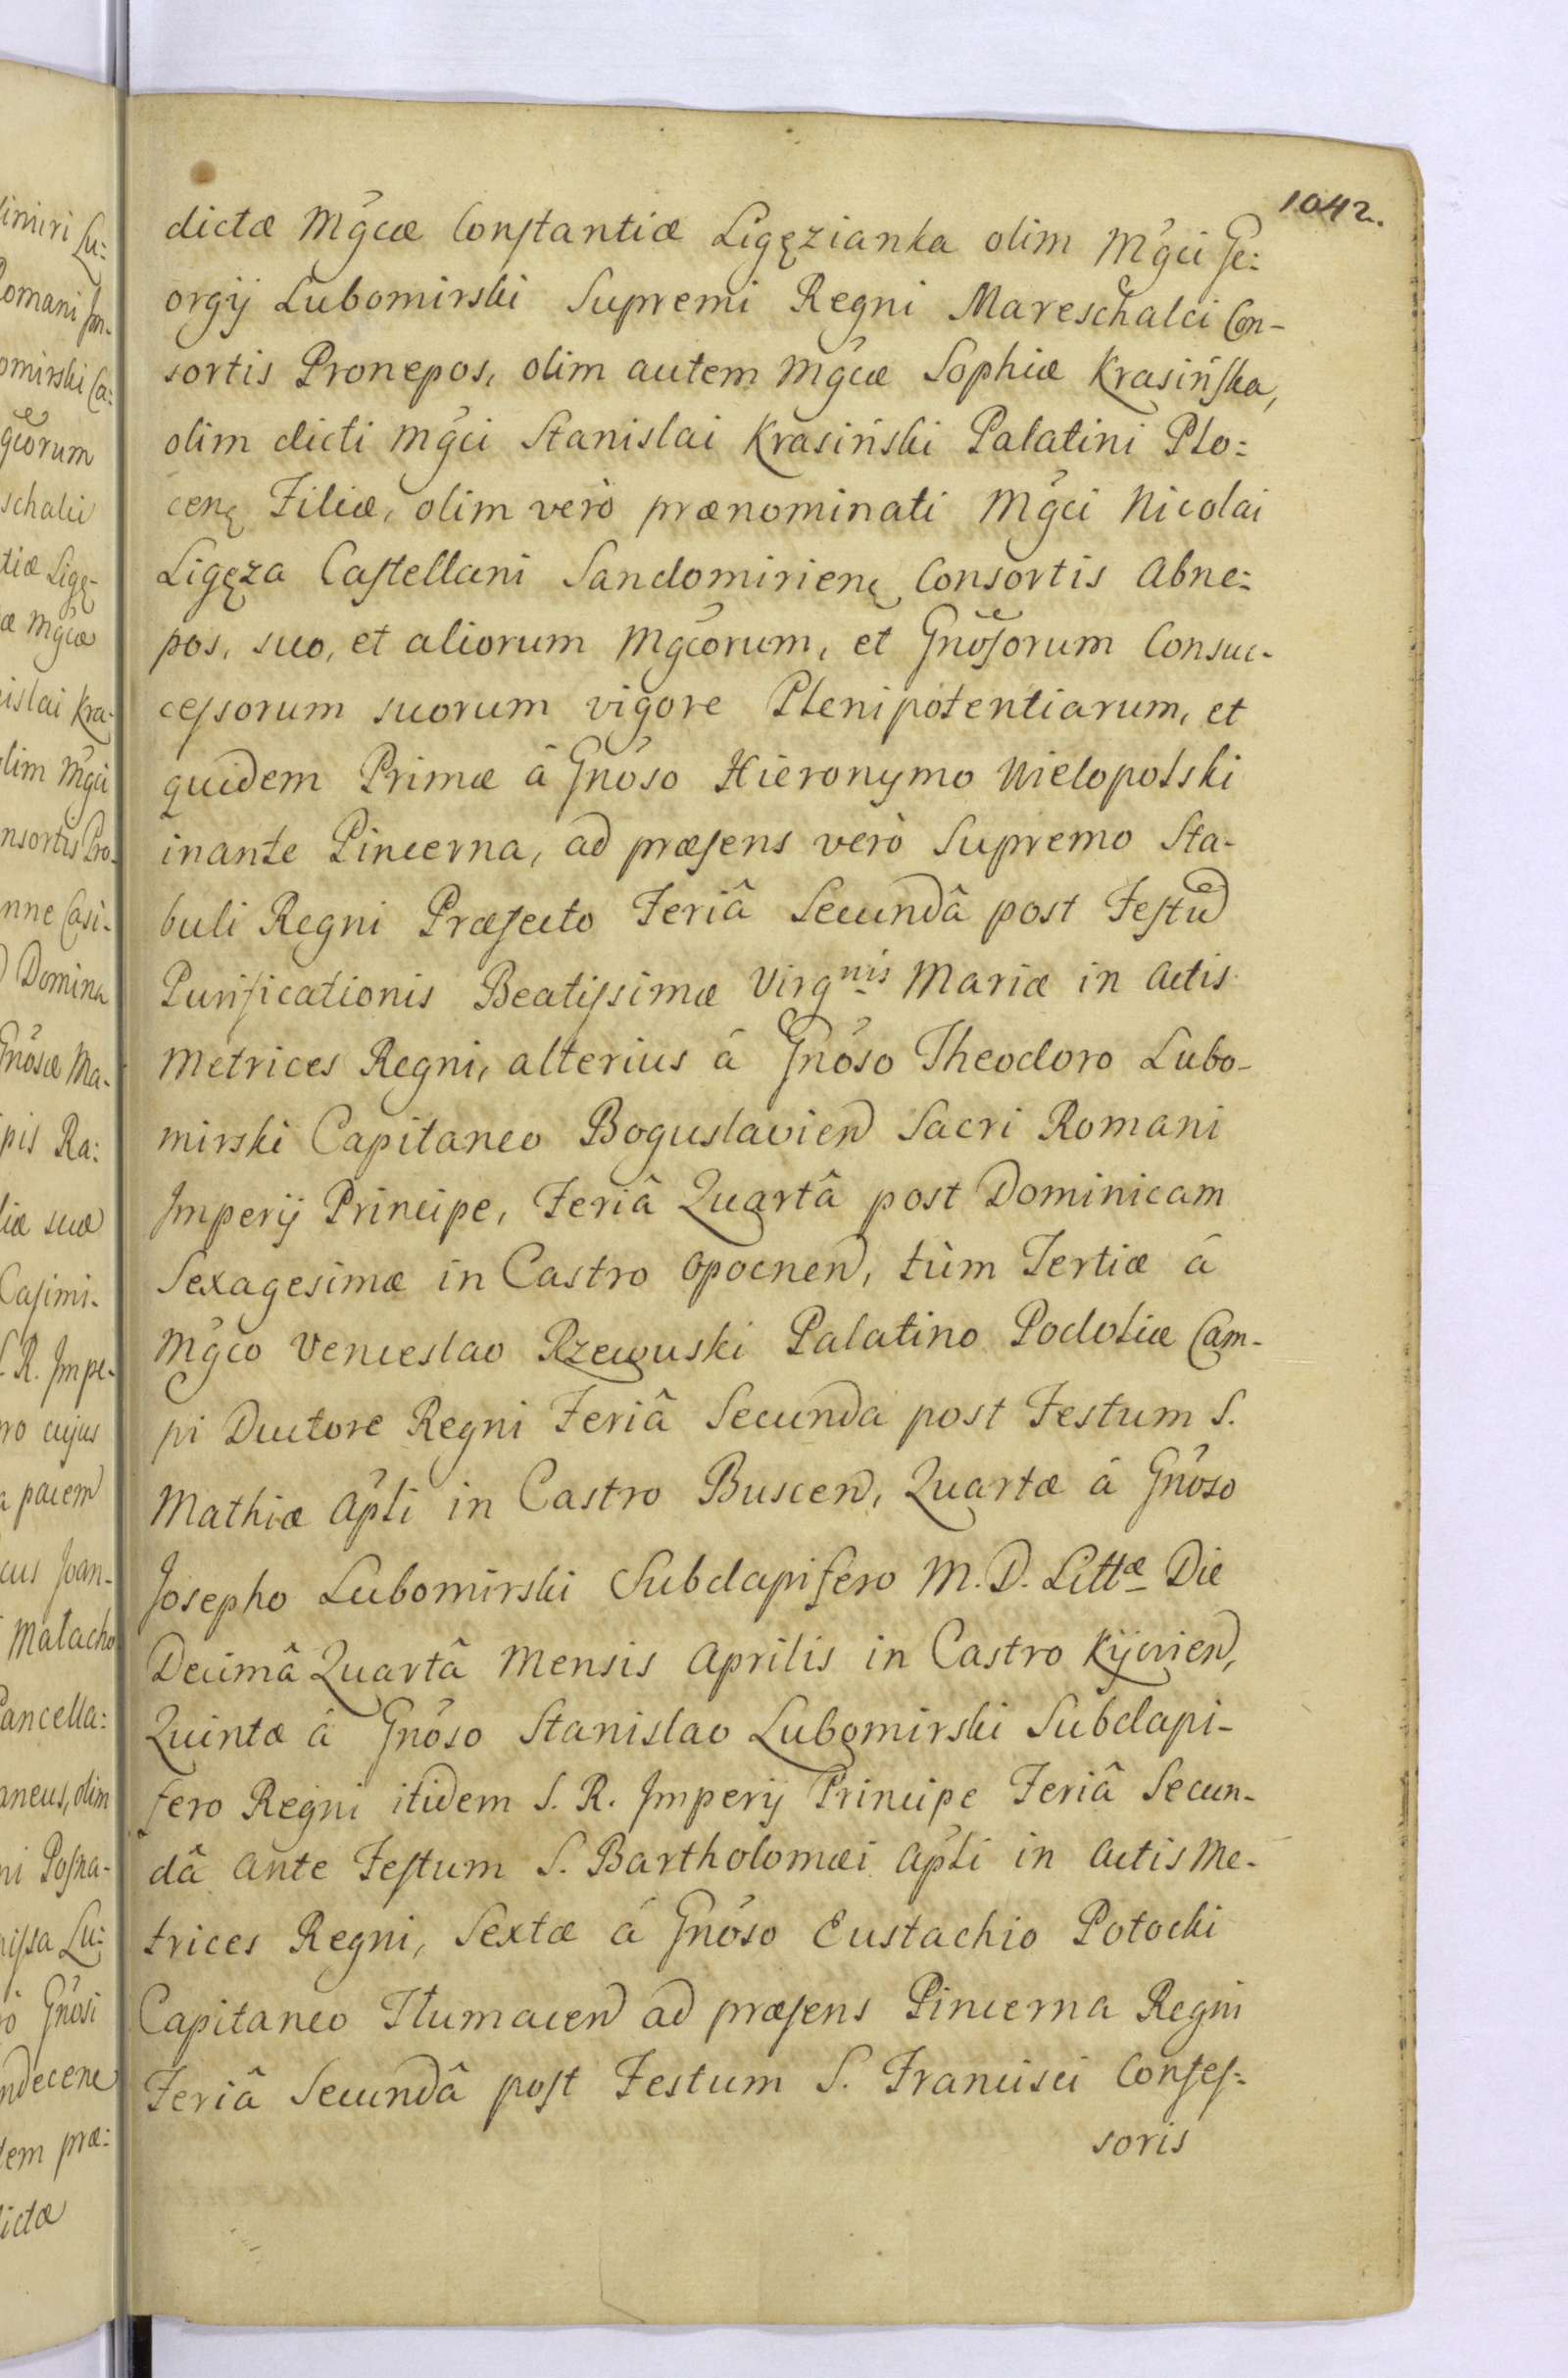 1042.
dictæ Mg̃cæ Constantiæ Ligęzianka olim Mg̃ci Ge:
orgÿ Lubomirski Supremi Regni Mareschalci Con-
sortis Pronepos, olim autem Mg̃cæ Sophiæ Krasińska,
olim dicti Mg̃ci Stanislai Krasiński Palatini Plo:
cenę Filiæ, olim verò prænominati Mg̃ci Nicolai
Ligęza Castellani Sandomirienę Consortis Abne:
pos, suo, et aliorum Mg̃corum, et Gnõsorum Consuc-
cessorum suorum vigore Plenipotentiarum, et
quidem Primæ â Gnõso Hieronymo Wielopolski
inante Pincerna, ad præsens verò Supremo Sta-
buli Regni Præfecto Feriâ Secundâ post Festũ
Purificationis Beatissimæ Virgnis Mariæ in Actis
Metrices Regni, alterius â Gnõso Theodoro Lubo-
mirski Capitaneo Boguslavien Sacri Romani
Imperÿ Principe, Feriâ Quartâ post Dominicam
Sexagesimæ in Castro Opocnen, tùm Tertiæ â
Mg̃co Venceslao Rzewuski Palatino Podoliæ Cam-
pi Ductore Regni Feriâ Secunda post Festum S.
Mathiæ Ap̃li in Castro Buscen, Quartæ â Gnõso
Josepho Lubomirski Subdapifero M. D. Littæ Die
Decimâ Quartâ Mensis Aprilis in Castro Kÿovien,
Quintæ â Gnõso Stanislao Lubomirski Subdapi-
fero Regni itidem S. R. Imperÿ Principe Feriâ Secun-
dâ ante Festum S. Bartholomæi Ap̃li in Actis Me-
trices Regni, Sextæ â Gnõso Eustachio Potocki
Capitaneo Tłumacen ad præsens Pincerna Regni
Feriâ Secundâ post Festum S. Francisci Confes:
soris